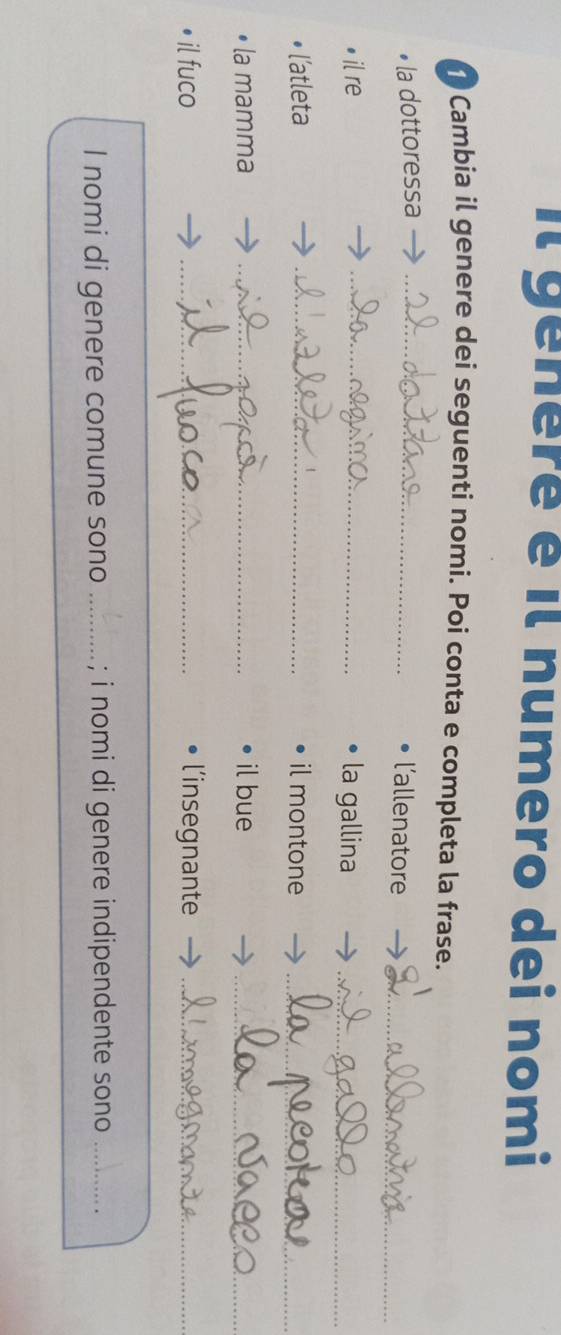 Il genere e il numero dei nomi
1 Cambia il genere dei seguenti nomi. Poi conta e completa la frase.
• la dottoressa → il dottore
• il re → la regina
• l'atleta → l'atleta
• la mamma → il papà
• il fuco → il fuoco
• l'allenatore → l'allenatrice
• la gallina → il gallo
• il montone → la pecora
• il bue → la vacca
• l'insegnante → l'insegnante
I nomi di genere comune sono ..........; i nomi di genere indipendente sono ..........